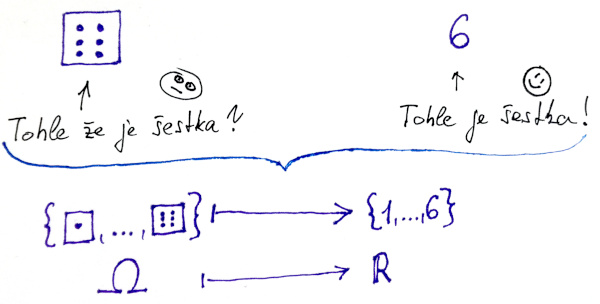 6
Tohle že je šestka?
Tohle je šestka!
{⚀,...,⚅} ↦ {1,...,6}
Ω ↦ ℝ